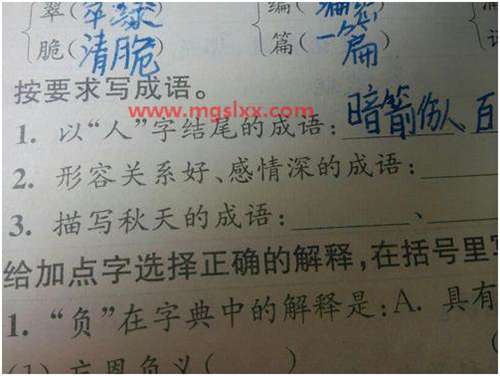 翠(翠绿 编(编
脆(清脆) 篇(一篇
按要求写成语。
www.mgslxx.com
1. 以“人”字结尾的成语:暗箭伤人 百
2. 形容关系好、感情深的成语:
3. 描写秋天的成语: 、
给加点字选择正确的解释,在括号里
1. “负”在字典中的解释是:A. 具有
(1) 忘恩负义( )